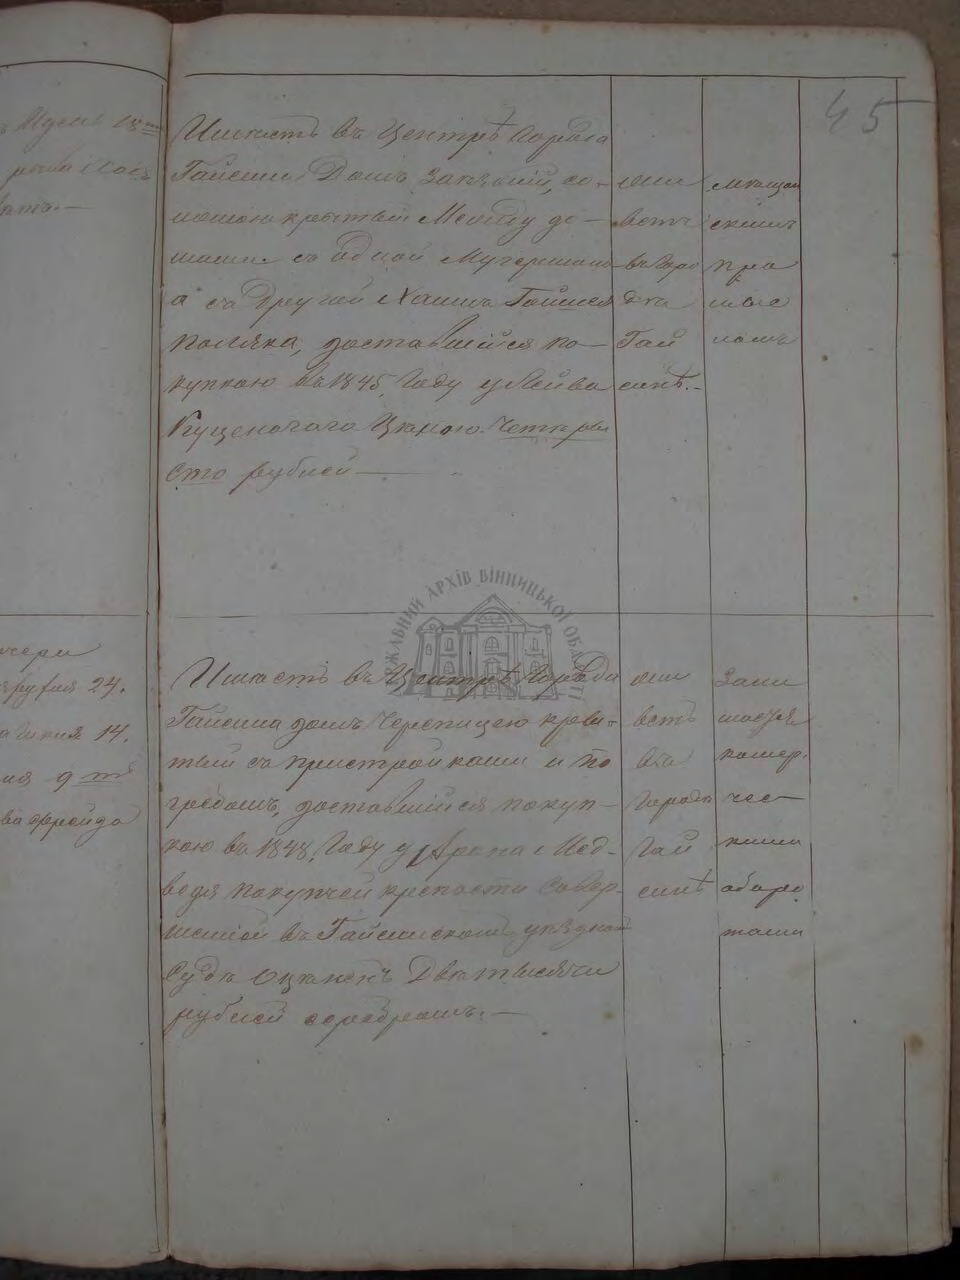 45
рыба
Имѣетъ въ Центрѣ Города
Гайсина Домъ заезжій, со-
ломою крытый Между до-
мами съ одной
а съ Другой Хаима
Поляка, доставшійся по-
купкою въ 1845, Году у Лейба
Куценогого Цѣною Четыре
сто рублей —
живетъ
въ Горо
дѣ
Гай
синѣ. —
мѣщан
скимъ
про
мыс
ломъ
ДЕРЖАВНИЙ АРХІВ ВІННИЦЬКОЇ ОБЛАСТІ
чери
24.
14.
ия 9 тъ
Имѣетъ въ Центрѣ Города
Гайсина домъ Черепицею кры-
тый съ пристройками и по
гребомъ, доставшійся покуп-
кою въ 1848, Году у Арона Мед-
ведя покупчей крепости Совер-
шенной въ Гайсинскомъ уѣздном
Судѣ оцѣненъ Двѣ тысячи
рублей серебромъ. —
живетъ
въ
Городѣ
Гай
синѣ
Зани
мается
комер-
чес-
кими
оборо
тами